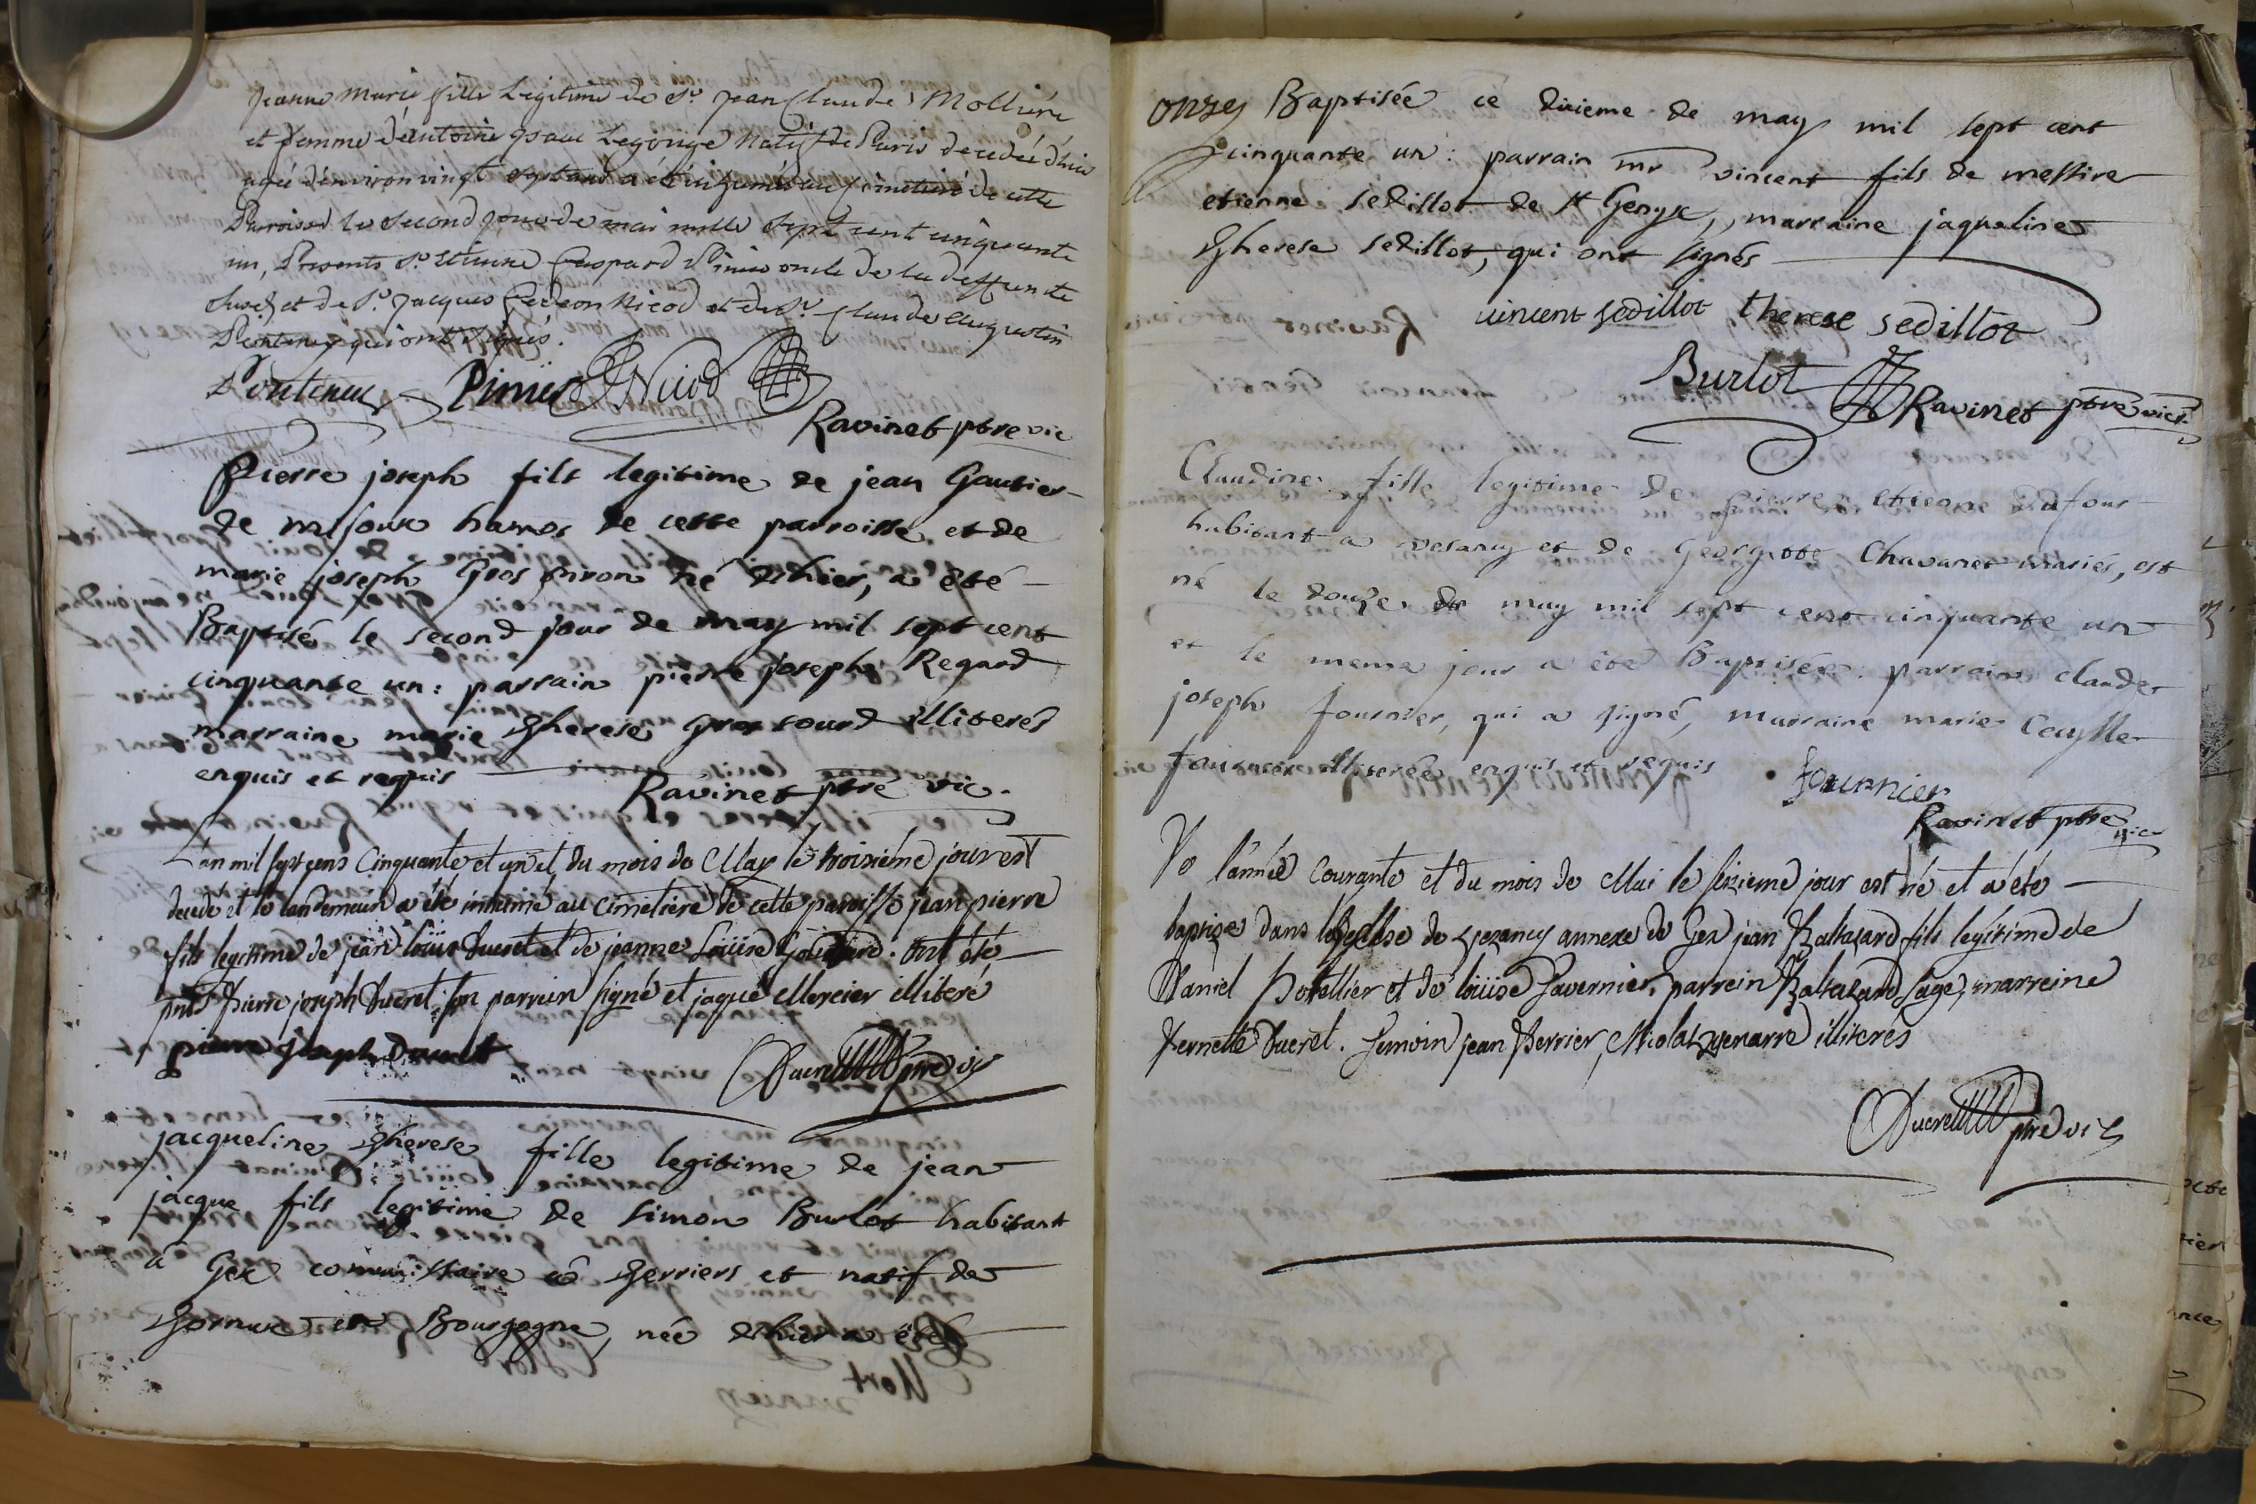 Jeanne Marie fille Legitime de Sr. Jean Claude Molliére
et femme d'Antoine Isaac Legorige Natif de Paris decedée d'hier
agée d'environ vingt sept ans a été inhumée au cimetiére de cette
Parroisse le second jour de mai mille sept cent cinquante
un, Presents Sr. Etienne Gaspard Pinier oncle de la deffunte
et de Sr. Jacques Gedeon Nicod et du Sr. Claude Augustin
qui ont signés.
Pinier Nicod
Ravinet ptre vic
Pierre joseph fils legitime de jean Gautier
de mijoux hamos de cette parroisse et de
marie joseph Gros piron né d'hier, a été
Baptisé le second jour de may mil sept cent
cinquante un : parrain pierre joseph Regard
marraine marie Therese gros sourd illiterés
enquis et requis
Ravinet ptre vic.
L'an mil sept cens Cinquante et un et du mois de May le troisiéme jour est
decedé et le landemain a été inhumé au cimetiére de cette paroisse jean pierre
fils legitime de jean loüis Ducret et de jeanne Loüise . ont été
pnts Pierre joseph Ducret son parrein signé et jaque Mercier illiteré
pierre joseph Ducret
Ducret ptre vic
jacqueline Therese fille legitime de jean
jacque fils legitime de simon Burlot habitant
a Gex commissaire es Terriers et natif de
Tornus en Bourgogne, née d'hier a été
onze Baptisée ce dixieme de may mil sept cent
cinquante un : parrain mr vincent fils de messire
etienne sedillot de st Genyx, marraine jaqueline
Therese sedillot, qui ont signés
vincent sedillot therese sedillot
Burlot Ravinet ptre vic.
Claudine fille legitime de pierre etienne dufour
habitant a vesancy et de Georgette Chavanet mariés, est
né le douze de may mil sept cent cinquante un
et le meme jour a été Baptisée : parrain claude
joseph fournier, qui a signé, marraine marie
illiterée enquis et requis
fournier
Ravinet ptre vic
l'année Courante et du mois de Mai le seizieme jour est né et a été
baptize dans l'eglise de Vezancy annexe de Gex jean Baltazard fils legitime de
Daniel Hotellier et de loüise Tavernier, parrein Baltazard Sage, marreine
Pernette Ducret. Temoin jean Perrier, Nicolas illiterés
Ducret ptre vic